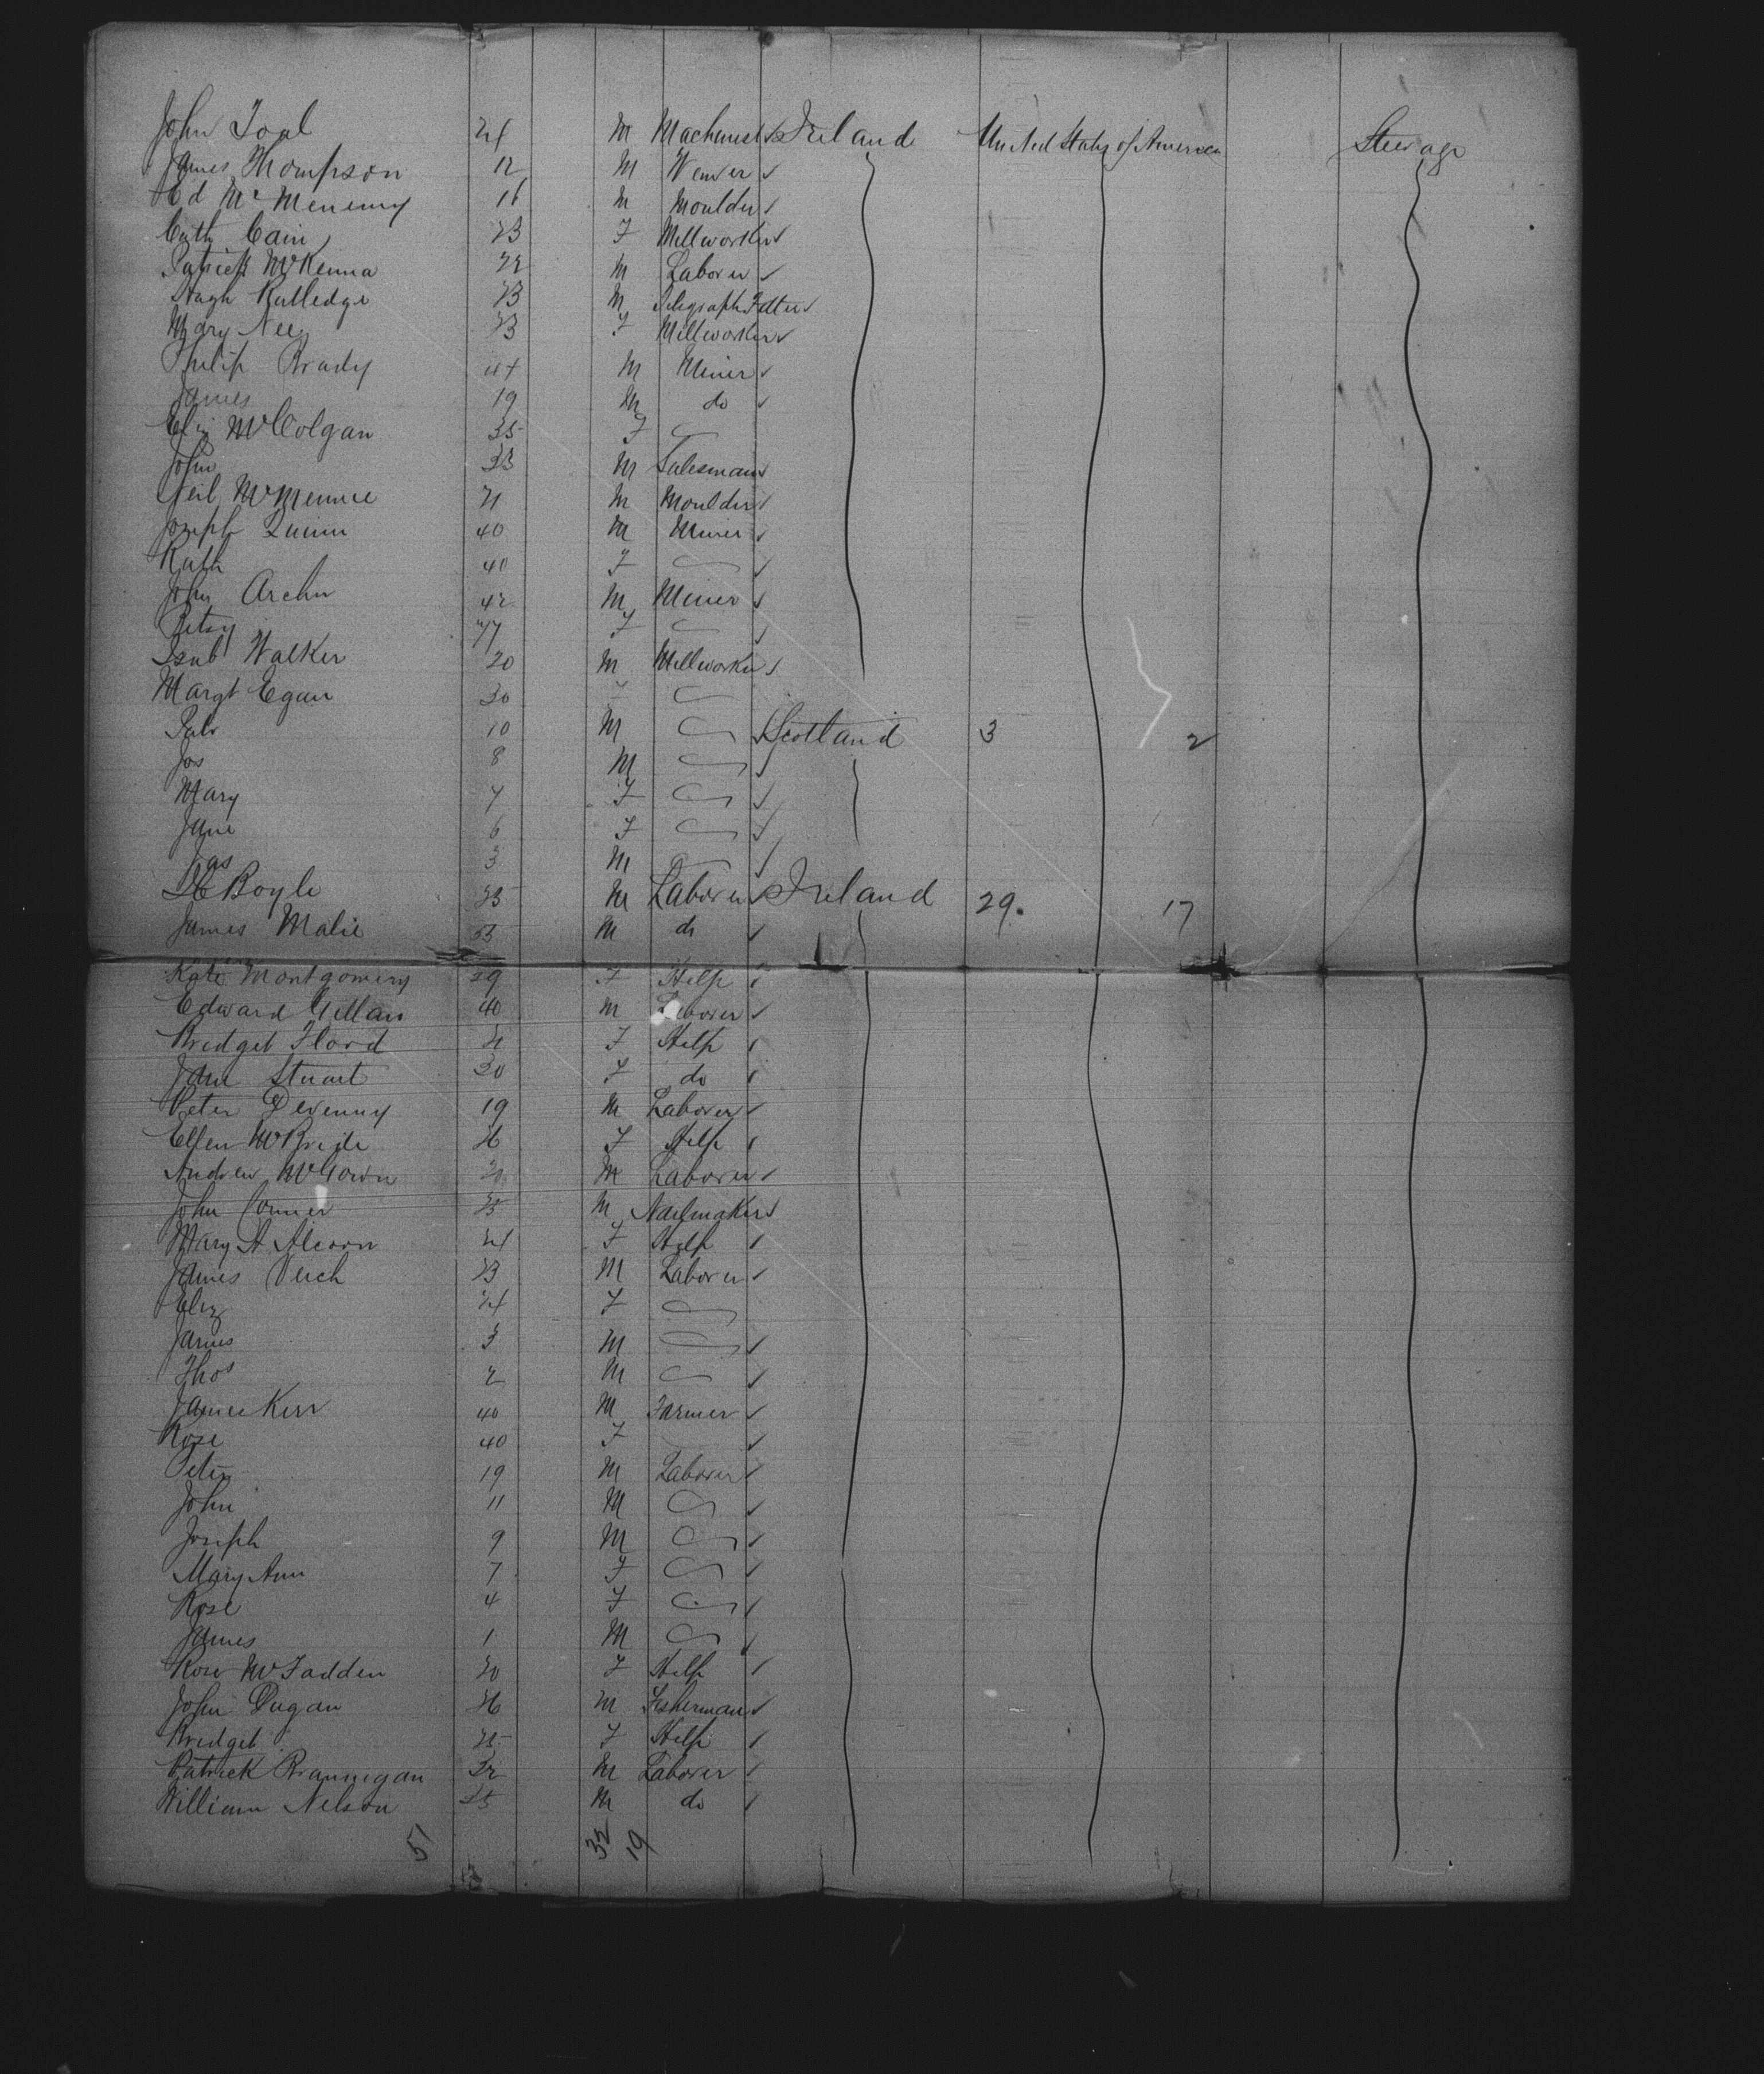 John Toal 24 M Machinist Ireland United States of America Steerage
James Thompson 12 M Weaver
Ed McMenemy 16 M Moulder
Cath Cain 23 F Millworker
Patrick McKenna 22 M Laborer
Hugh Rutledge 23 M Telegraph Fitter
Mary Neey 23 F Millworker
Philip Brady 44 M Miner
James 19 M do
Eliz McColgan 35 F
John 33 M Salesman
Neil McMennie 21 M Moulder
Joseph Quinn 40 M Miner
Kath 40 F
John Archer 42 M Miner
Betsy F
Isab Walker 20 M Millworker
Margt Egan 30 F
10 M Scotland 3 2
Jos 8 M
Mary 7 F
Jane 6 F
Jas 3 M
Boyle 25 M Laborer Ireland 29. 17
James Malie 55 M do
Kate Montgomery 29 F Help
Edward Gillan 40 M Laborer
Bridget Flord 21 F Help
Jane Stuart 30 F do
Peter Devenny 19 M Laborer
Ellen McBride 26 F Help
Andrew McGown 20 M Laborer
John Conner 25 M Nailmaker
Mary A Alcorn 24 F Help
James Veich 23 M Laborer
Eliz 24 F
James 3 M
Thos 2 M
James Kerr 40 M Farmer
Rose 40 F
Peter 19 M Laborer
John 11 M
Joseph 9 M
Mary Ann 7 F
Rose 4 F
James 1 M
Rose McFadden 20 F Help
John Dugan 26 M Fisherman
Bridget 25 F Help
Patrick Brannigan 32 M Laborer
William Nelson 25 M do
51 32 19